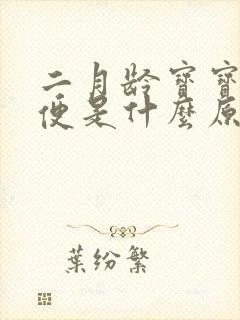 二月龄宝宝
便是什麽原
葉纷繁